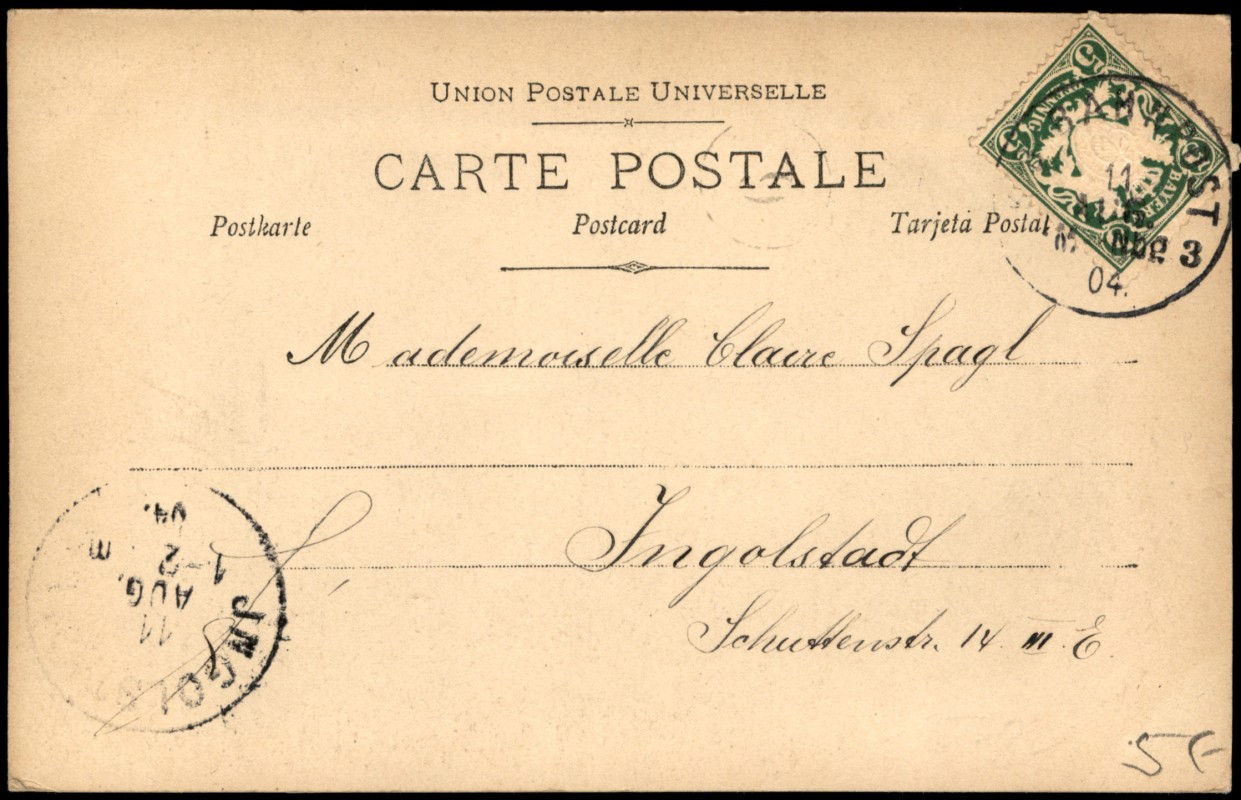 UNION POSTALE UNIVERSELLE
CARTE POSTALE
Postkarte Postcard Tarjeta Postal
5 PFENNIG
BAYERN
BAHNPOST
11
AUG.
Nbg 3
04.
Mademoiselle Claire Spagl
Ingolstadt
Schuttenstr. 14 III E
JNGOLST
11
AUG.
1-2
04.
5